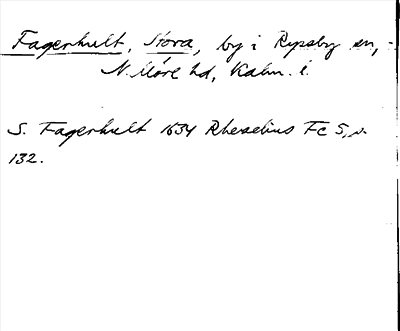 Fagerhult, Stora, by i Ryssby sn,
N. Möre hd, Kalm. l.
S. Fagerhult 1634 Rhezelius Fc 5, s.
132.